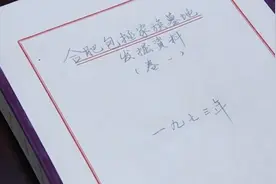 合肥包拯家族墓地
发掘资料
（卷一）
一九七三年